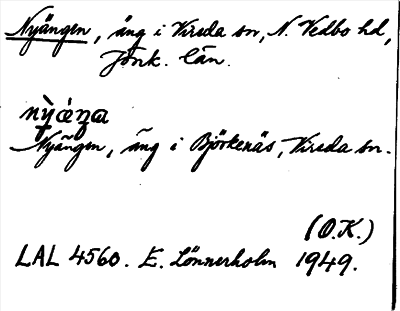 Nyängen, äng i Vireda sn, N. Vedbo hd,
Jönk. län.
Nyängen, äng i Björkenäs, Vireda sn.
(O.K.)
LAL 4560. E. Lönnerholm 1949.